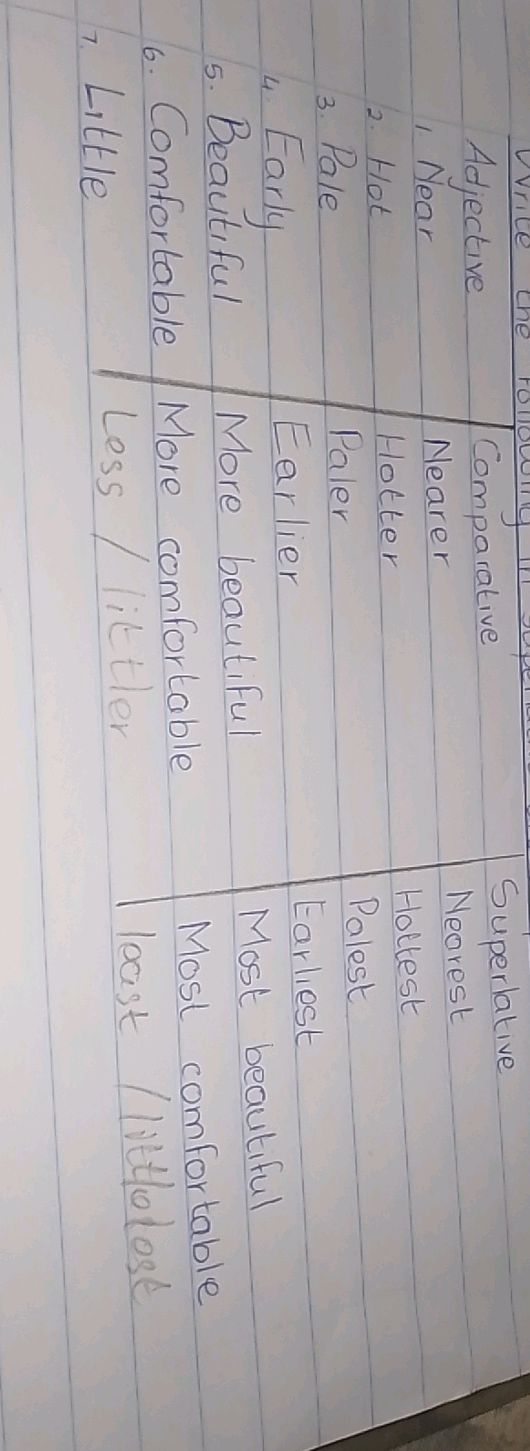 Write the following in
Adjective Comparative Superlative
1. Near Nearer Nearest
2. Hot Hotter Hottest
3. Pale Paler Palest
4. Early Earlier Earliest
5. Beautiful More beautiful Most beautiful
6. Comfortable More comfortable Most comfortable
7. Little Less / littler /